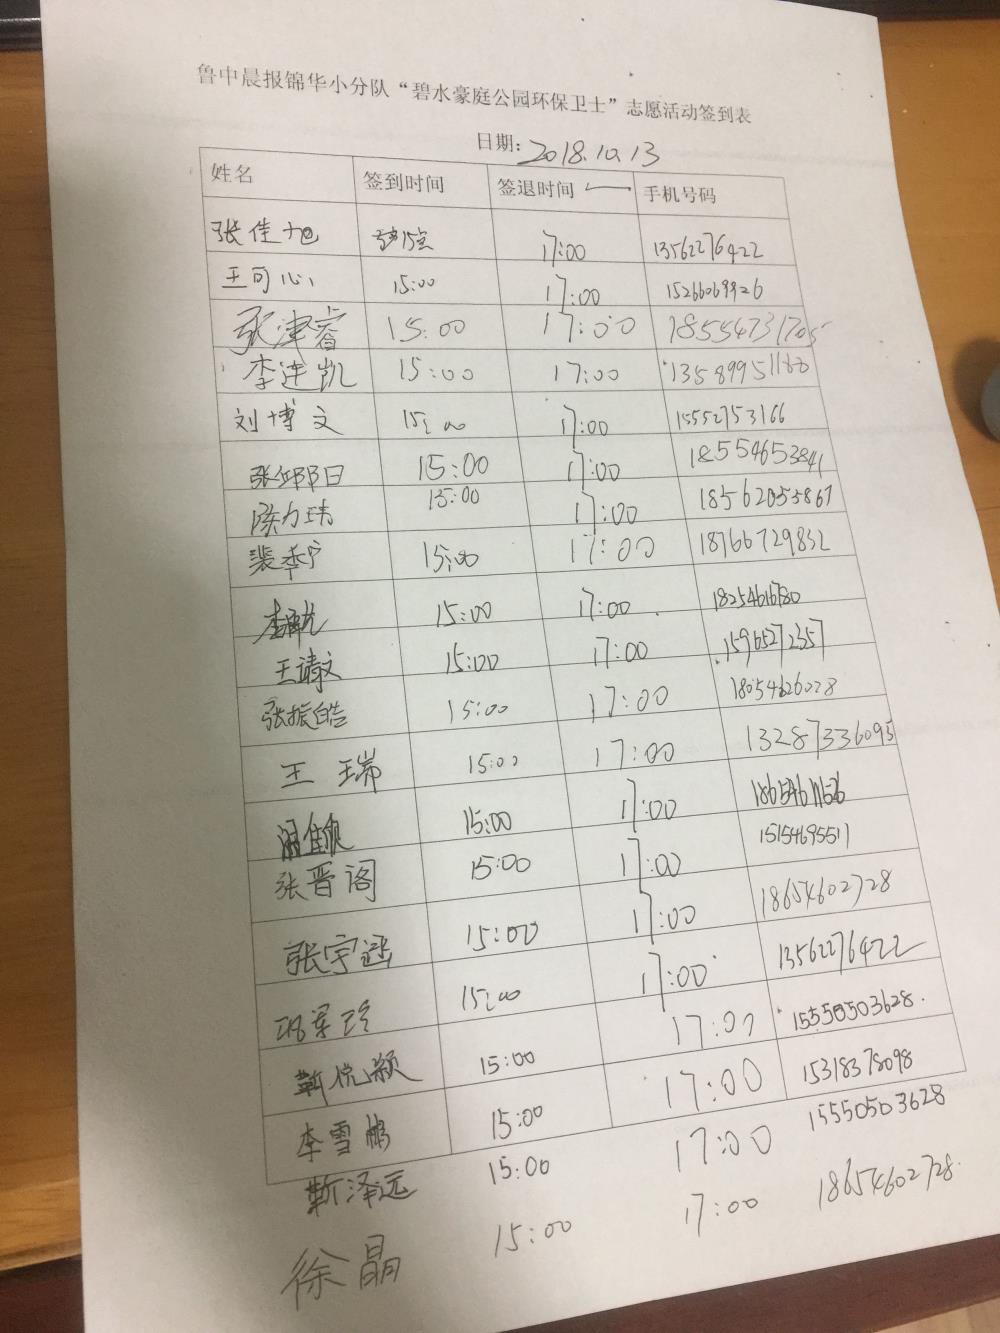 鲁中晨报锦华小分队“碧水豪庭公园环保卫士”志愿活动签到表
日期：2018.10.13
姓名 签到时间 签退时间 手机号码
张佳旭 15点 17:00 13562276422
王可心 15:00 17:00 15266069926
张津睿 15:00 17:00 18554731705
李连凯 15:00 17:00 13589951188
刘博文 15:00 17:00 15552753166
张邱阳 15:00 17:00 18554653841
陈力玮 15:00 17:00 18562055867
裴季宁 15:00 17:00 18766729832
15:00 17:00 18254616780
王靖文 15:00 17:00 15965272357
张振皓 15:00 17:00 18054626028
王瑞 15:00 17:00 13287336095
15:00 17:00
张晋阁 15:00 17:00 15154695511
张宇涵 15:00 17:00 18654602728
15:00 17:00 13562276422
靳优颖 15:00 17:00 15550503628
李雪鹏 15:00 17:00 15318378098
靳泽远 15:00 17:00 15550503628
徐晶 15:00 17:00 18654602728